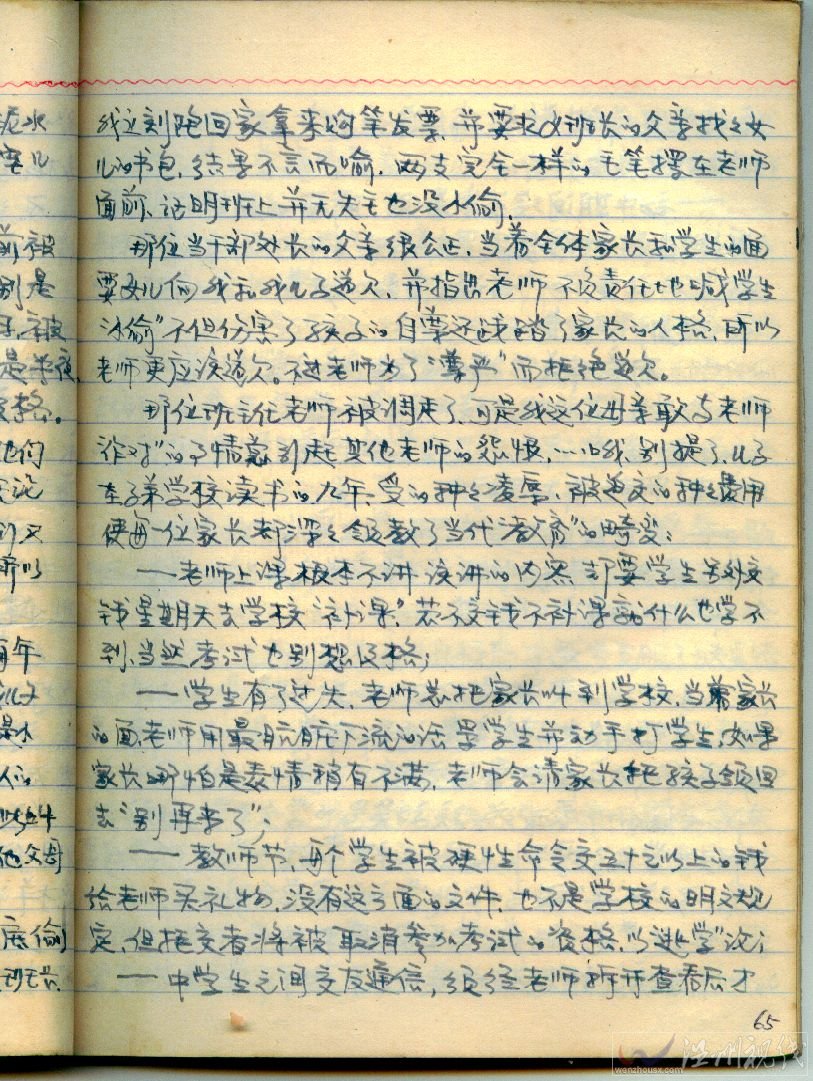 我立刻跑回家拿来购笔发票,并要求女班长的父亲找之女
儿的书包,结果不言而喻,两支完全一样的毛笔摆在老师
面前、证明班上并无失主也没小偷。
那位当干部处长的父亲很公正,当着全体家长和学生的面
要女儿向我和我儿子道欠,并指出老师不负责任地喊学生
“小偷”不但伤害了孩子的自尊还践踏了家长的人格,所以
老师更应该道欠。不过老师为了“尊严”而拒绝道欠。
那位班主任老师被调走了,可是我这位母亲敢与老师
“作对”的事情惹引起其他老师的怨恨,……哦,别提了,儿子
在子弟学校读书的九年、受的种之凌辱,被迫交的种之费用
使每一位家长都深之领教了当代“教育”的畸变:
一老师上课根本不讲该讲的内容,却要学生另外交
钱星期天去学校“补课”,若不交钱不补课就什么也学不
到,当然考试也别想及格;
一学生有了过失,老师总把家长叫到学校,当着家长
的面,老师用最肮脏下流的话骂学生并动手打学生,如果
家长哪怕是表情稍有不满,老师会请家长把孩子领回
去“别再来了”;
一教师节,每个学生被硬性命令交五十元以上的钱
给老师买礼物,没有这方面的文件,也不是学校的明文规
定,但拒交者将被取消参加考试的资格,以“逃学”论;
一中学生之间交友通信,须经老师拆开查看后才
65
泥水
前被
别是
被
是半夜
格。
他们
又
所以
年
人的
他父母
底偷
班长
温州视线
wenzhousx.com